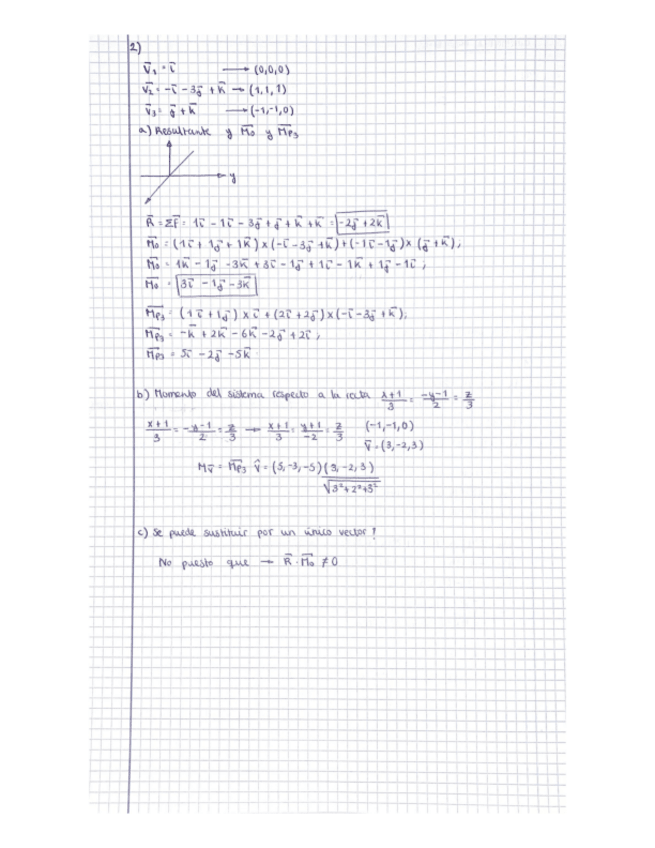 2)
V⃗₁ = i⃗ ⟶ (0,0,0)
V⃗₂ = -i⃗ - 3j⃗ + k⃗ → (1,1,1)
V⃗₃ = j⃗ + k⃗ ⟶ (-1,-1,0)
a) Resultante y M⃗o y M⃗p₃
y
R⃗ = ΣF⃗ = 1i⃗ - 1i⃗ - 3j⃗ + j⃗ + k⃗ + k⃗ = -2j⃗ + 2k⃗
M⃗o = (1i⃗ + 1j⃗ + 1k⃗) × (-i⃗ - 3j⃗ + k⃗) + (-1i⃗ - 1j⃗) × (j⃗ + k⃗);
M⃗o = 1k⃗ - 1j⃗ - 3k⃗ + 3i⃗ - 1j⃗ + 1i⃗ - 1k⃗ + 1j⃗ - 1i⃗;
M⃗o = 3i⃗ - 1j⃗ - 3k⃗
M⃗p₃ = (1i⃗ + 1j⃗) × i⃗ + (2i⃗ + 2j⃗) × (-i⃗ - 3j⃗ + k⃗);
M⃗p₃ = -k⃗ + 2k⃗ - 6k⃗ - 2j⃗ + 2i⃗;
M⃗p₃ = 5i⃗ - 2j⃗ - 5k⃗
b) Momento del sistema respecto a la recta (x+1)/3 = (-y-1)/2 = z/3
(x+1)/3 = (-y-1)/2 = z/3 → (x+1)/3 = (y+1)/-2 = z/3 (-1,-1,0)
V⃗ = (3,-2,3)
M v⃗ = M⃗p₃ v̂ = (5,-3,-5) (3,-2,3)/√(3²+2²+3²)
c) Se puede sustituir por un único vector?
No puesto que → R⃗ · M⃗o ≠ 0